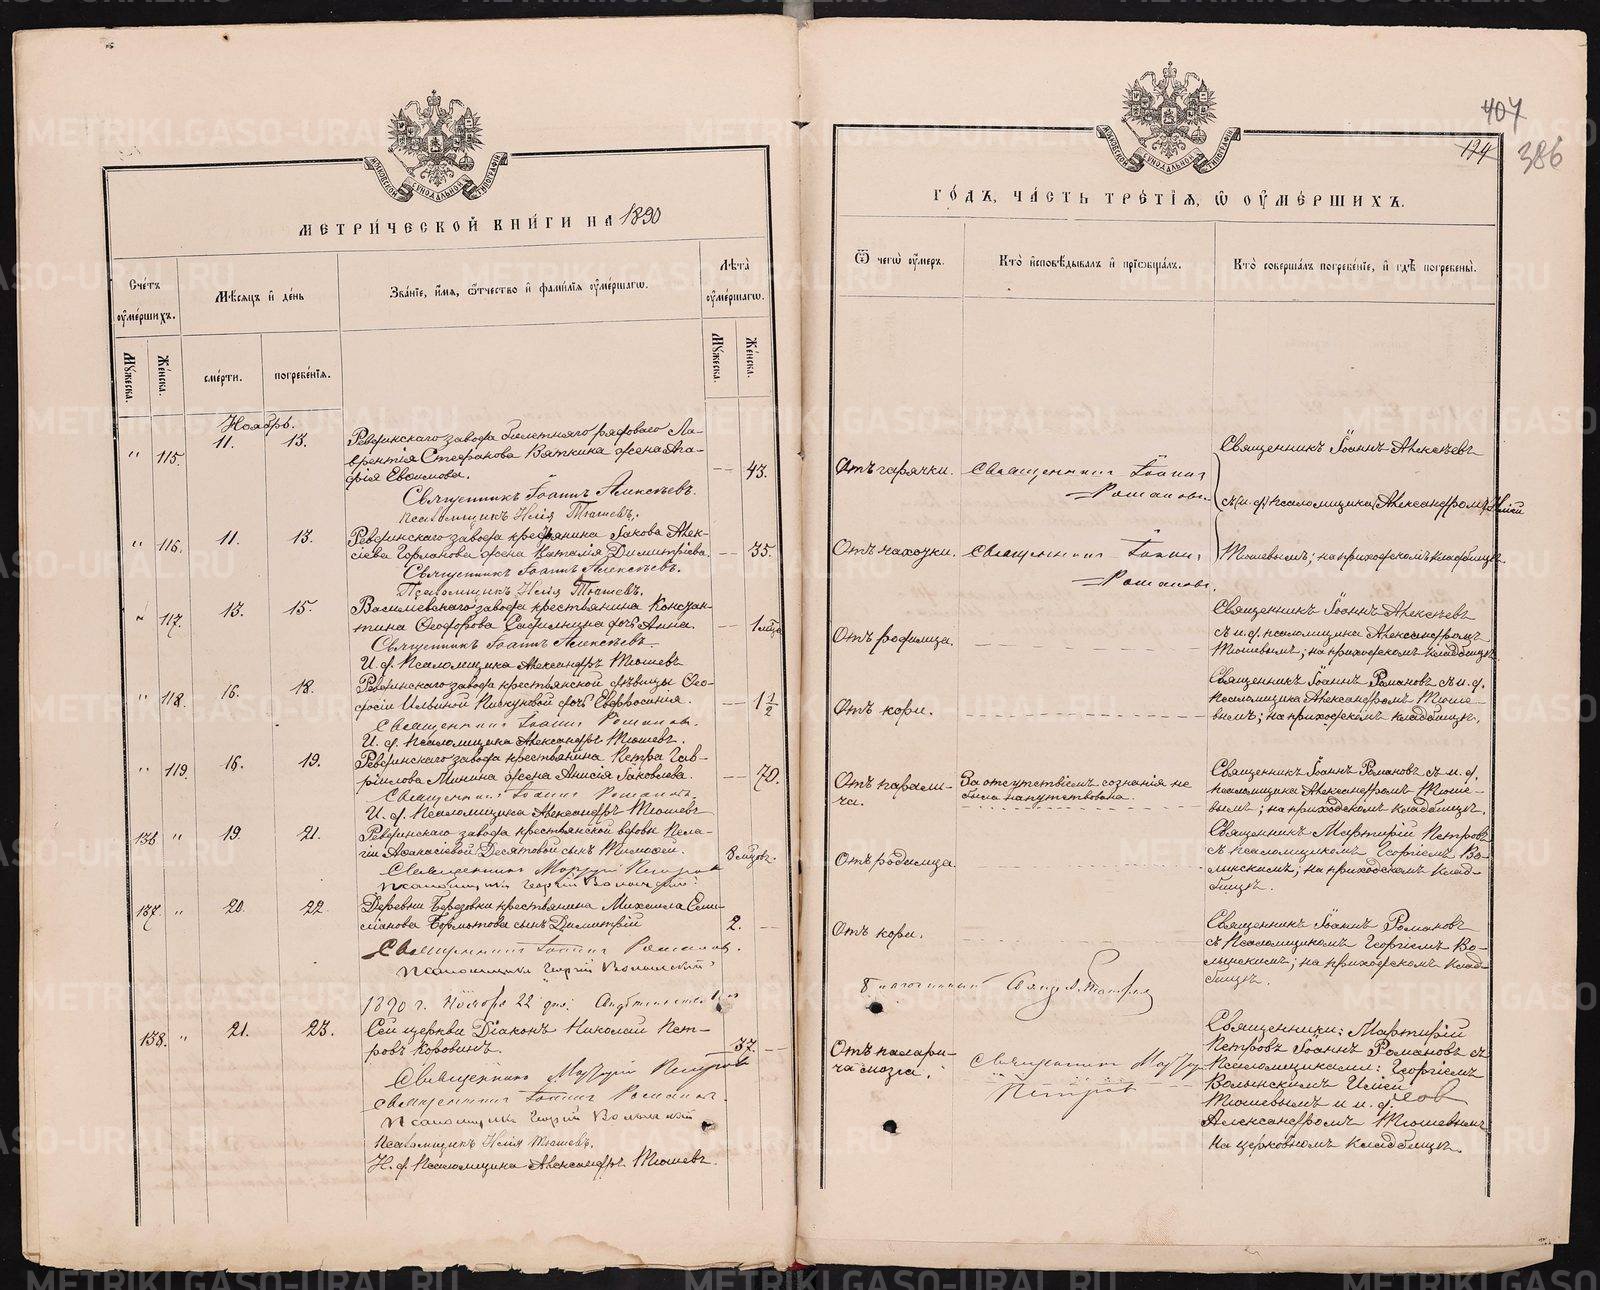 МОСКОВСКОЙ СѴНОДАЛЬНОЙ ТИПОГРАФІИ
МЕТРИ́ЧЕСКОЙ КНИ́ГИ НА 1890
Сче́тъ ᲂу҆ме́ршихъ.
Мѣ́сяцъ и҆ де́нь
Зва́нїе, и҆́мя, ѻ҆́тчество и҆ фами́лїя ᲂу҆ме́ршагѡ.
Лѣ́та ᲂу҆ме́ршагѡ.
Мꙋ́жеска.
Же́нска.
сме́рти.
погребе́нїя.
Мꙋ́жеска.
Же́нска.
Ноябрь.
" 115. 11. 13. Ревдинскаго завода билетнаго рядоваго Ла-
врентія Стефанова Вяткина жена Ага-
фія Евфимова. — 43.
Священникъ Іоаннъ Алексѣевъ.
Псаломщикъ Илія Тюшевъ.
" 116. 11. 13. Ревдинскаго завода крестьянина Іакова Алек-
сіева Горланова жена Наталія Димитріева. — 35.
Священникъ Іоаннъ Алексѣевъ.
Псаломщикъ Илія Тюшевъ.
" 117. 13. 15. Васильевскаго завода крестьянина Констан-
тина Ѳеодорова дочь Анна. — 1 мѣсяца
Священникъ Іоаннъ Алексѣевъ.
И. д. Псаломщика Александръ Тюшевъ
" 118. 16. 18. Ревдинскаго завода крестьянской дѣвицы Ѳео-
досіи Ильиной Пичуговой дочь Евфросинія. — 1 1/2
Священникъ Іоаннъ Романовъ.
И. д. Псаломщика Александръ Тюшевъ.
" 119. 16. 19. Ревдинскаго завода крестьянина Петра Гав-
ріилова Минина жена Анисія Іаковлева. — 70.
Священникъ Іоаннъ Романовъ.
И. д. Псаломщика Александръ Тюшевъ
136 " 19. 21. Ревдинскаго завода крестьянской вдовы Пела-
гіи Аѳанасіевой Десятовой сынъ Тимоѳей. 8 мѣсяцевъ.
Священникъ Мартирій Петровъ
Псаломщикъ Георгій Волынскій
137. " 20. 22. Деревни Березовки крестьянина Михаила
сынъ Димитрій 2. —
Священникъ Іоаннъ Романовъ.
Псаломщикъ Георгій Волынскій
1890 г. Ноября 22 дня.
138. " 21. 23. Сей церкви Діаконъ Николай Пет-
ровъ Коровинъ. 37. —
Священникъ Мартирій Петровъ
Священникъ Іоаннъ Романовъ.
Псаломщикъ Георгій Волынскій
Псаломщикъ Илія Тюшевъ.
И. д. Псаломщика Александръ Тюшевъ.
407
194
386
МОСКОВСКОЙ СѴНОДАЛЬНОЙ ТИПОГРАФІИ
ГО́ДЪ, ЧА́СТЬ ТРЕ́ТЇѦ, Ѡ҆ ОУ҆МЕ́РШИХЪ.
Ѿ чегѡ̀ ᲂу҆́меръ.
Кто̀ и҆сповѣ́дывалъ и҆ прїѡбща́лъ.
Кто̀ соверша́лъ погребе́нїе, и҆ гдѣ̀ погребены̀.
Отъ горячки. Священникъ Іоаннъ
Романовъ.
Священникъ Іоаннъ Алексѣевъ
съ и. д. псаломщика Александромъ
Отъ чахотки. Священникъ Іоаннъ
Романовъ.
Тюшевымъ; на приходскомъ кладбищѣ.
Отъ родимца.
Священникъ Іоаннъ Алексѣевъ
съ и. д. псаломщика Александромъ
Тюшевымъ; на приходскомъ кладбищѣ.
Отъ кори.
Священникъ Іоаннъ Романовъ съ и. д.
псаломщика Александромъ Тюше-
вымъ; на приходскомъ кладбищѣ.
Отъ парали-
ча.
За отсутствіемъ сознанія не
была напутствована.
Священникъ Іоаннъ Романовъ съ и. д.
псаломщика Александромъ Тюше-
вымъ; на приходскомъ кладбищѣ.
Отъ родимца.
Священникъ Мартирій Петровъ
съ псаломщикомъ Георгіемъ Во-
лынскимъ; на приходскомъ клад-
бищѣ.
Отъ кори.
Священникъ Іоаннъ Романовъ
съ Псаломщикомъ Георгіемъ Во-
лынскимъ; на приходскомъ клад-
бищѣ.
Отъ парали-
ча мозга.
Священникъ
Петровъ
Священники: Мартирій
Петровъ Іоаннъ Романовъ съ
Псаломщиками: Георгіемъ
Волынскимъ Иліей
Тюшевымъ и и. д.
Александромъ Тюшевымъ
на церковномъ кладбищѣ.
METRIKI.GASO-URAL.RU